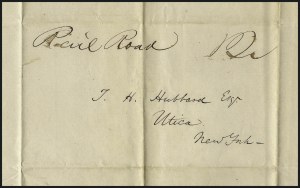 Rail Road
T. H. Hubbard Esqr
Utica
New York